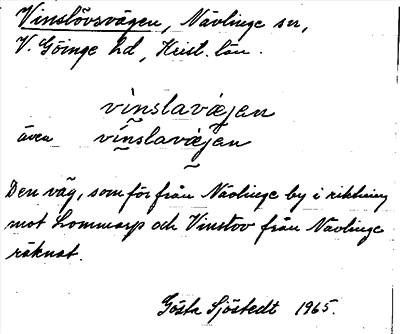 Vinslövsvägen, Nävlinge sn,
V. Göinge hd, Krist. län.
vinslavägen
även vinslavägen
Den väg, som för från Nävlinge by i riktning
mot Lommarp och Vinslöv från Nävlinge
räknat.
Gösta Sjöstedt 1965.